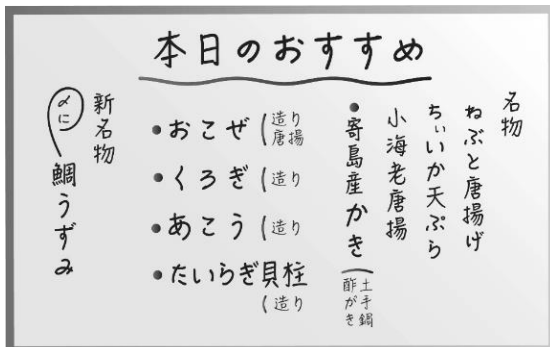 本日のおすすめ
名物
ねぶと唐揚げ
ちぃいか天ぷら
小海老唐揚
●寄島産かき（土手鍋
酢がき
●おこぜ（造り
唐揚
●くろぎ（造り
●あこう（造り
●たいらぎ貝柱
（造り
新名物
〆に
鯛うずみ